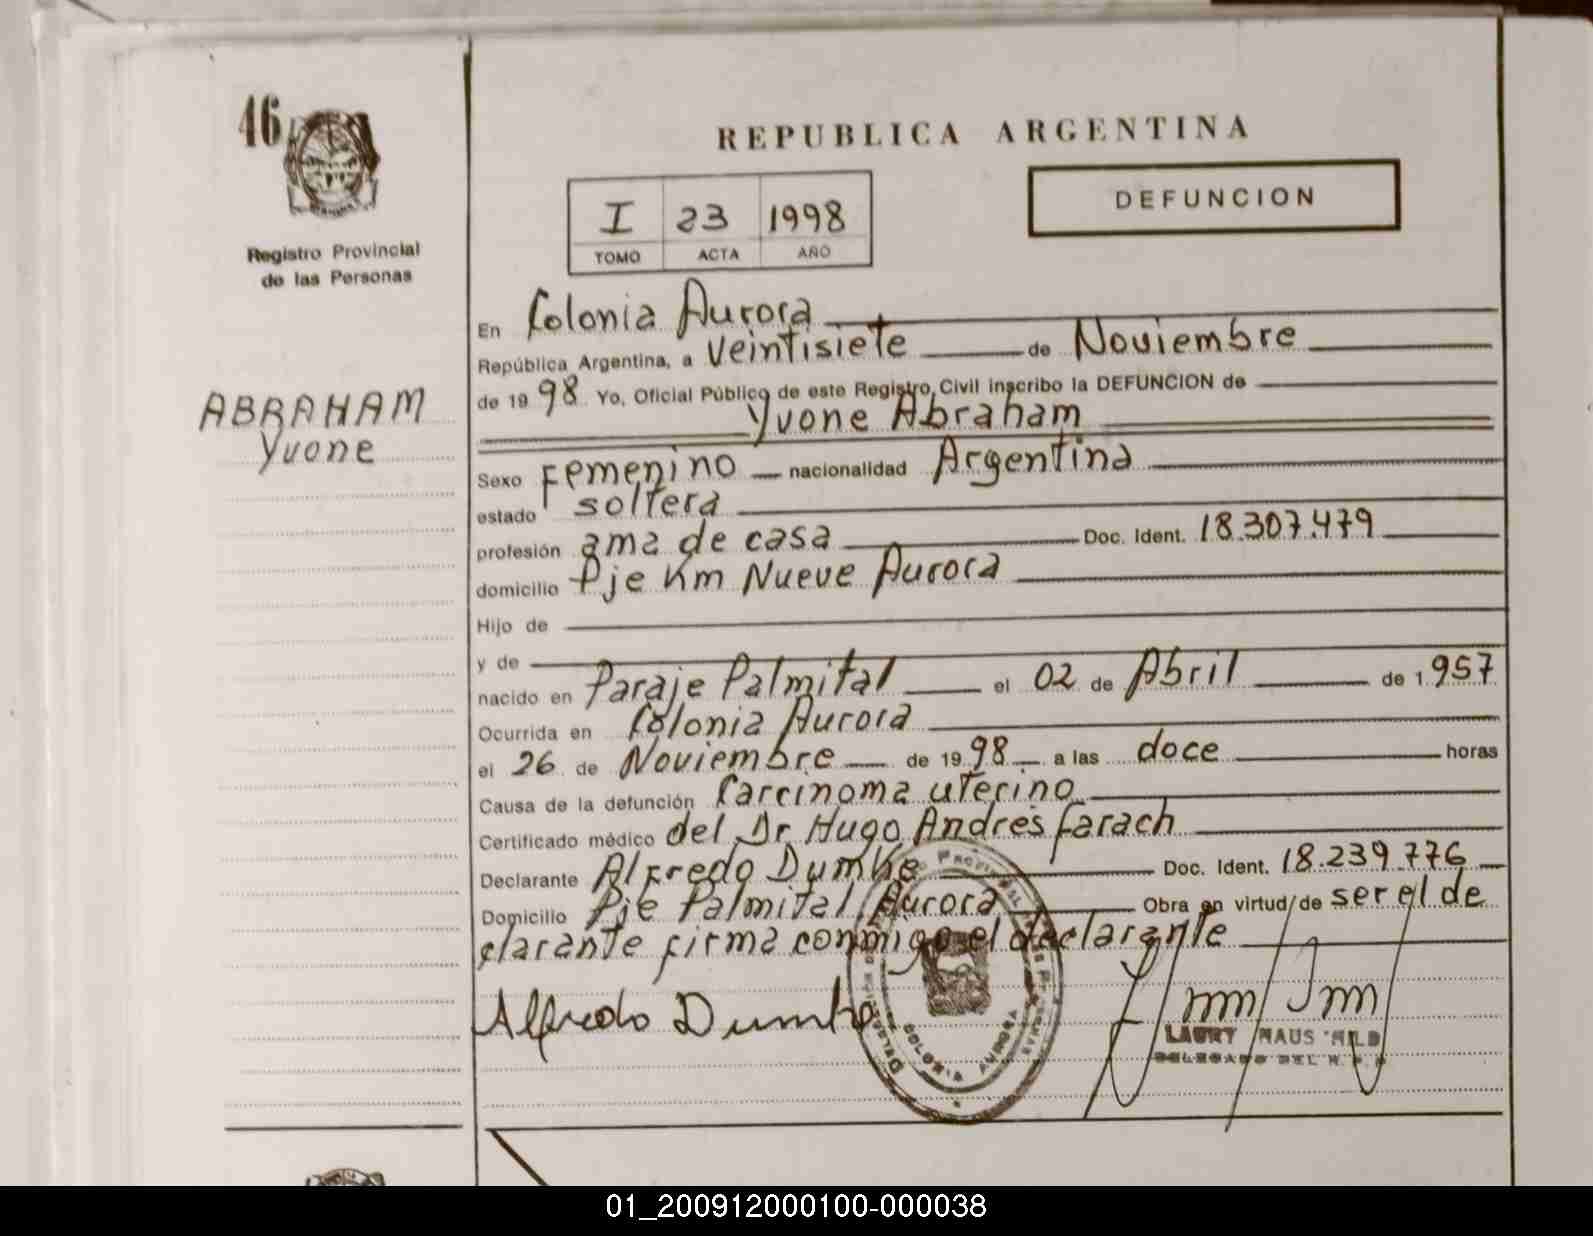 46
Registro Provincial
de las Personas
ABRAHAM
Yvone
REPUBLICA ARGENTINA
DEFUNCION
I 23 1998
TOMO ACTA AÑO
En Colonia Aurora
República Argentina, a veintisiete de Noviembre
de 19 98 Yo, Oficial Público de este Registro Civil inscribo la DEFUNCION de
Yvone Abraham
Sexo Femenino nacionalidad Argentina
estado soltera
profesión ama de casa Doc. Ident. 18.307.479
domicilio Pje Km Nueve Aurora
Hijo de
y de
nacido en Paraje Palmital el 02 de Abril de 1.957
Ocurrida en Colonia Aurora
el 26 de Noviembre de 19 98 a las doce horas
Causa de la defunción Carcinoma uterino
Certificado médico del Dr Hugo Andres Farach
Declarante Alfredo Dumke Doc. Ident. 18.239.776
Domicilio Pje Palmital Aurora Obra en virtud de ser el de
clarante firma conmigo el declarante
Alfredo Dumke
COLONIA AURORA
LAURY
01_200912000100-000038